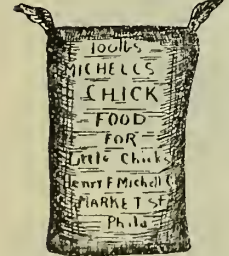 100 lbs
MICHELL'S
CHICK
FOOD
FOR
Little Chicks
Henry F Michell Co
MARKET St
Phila